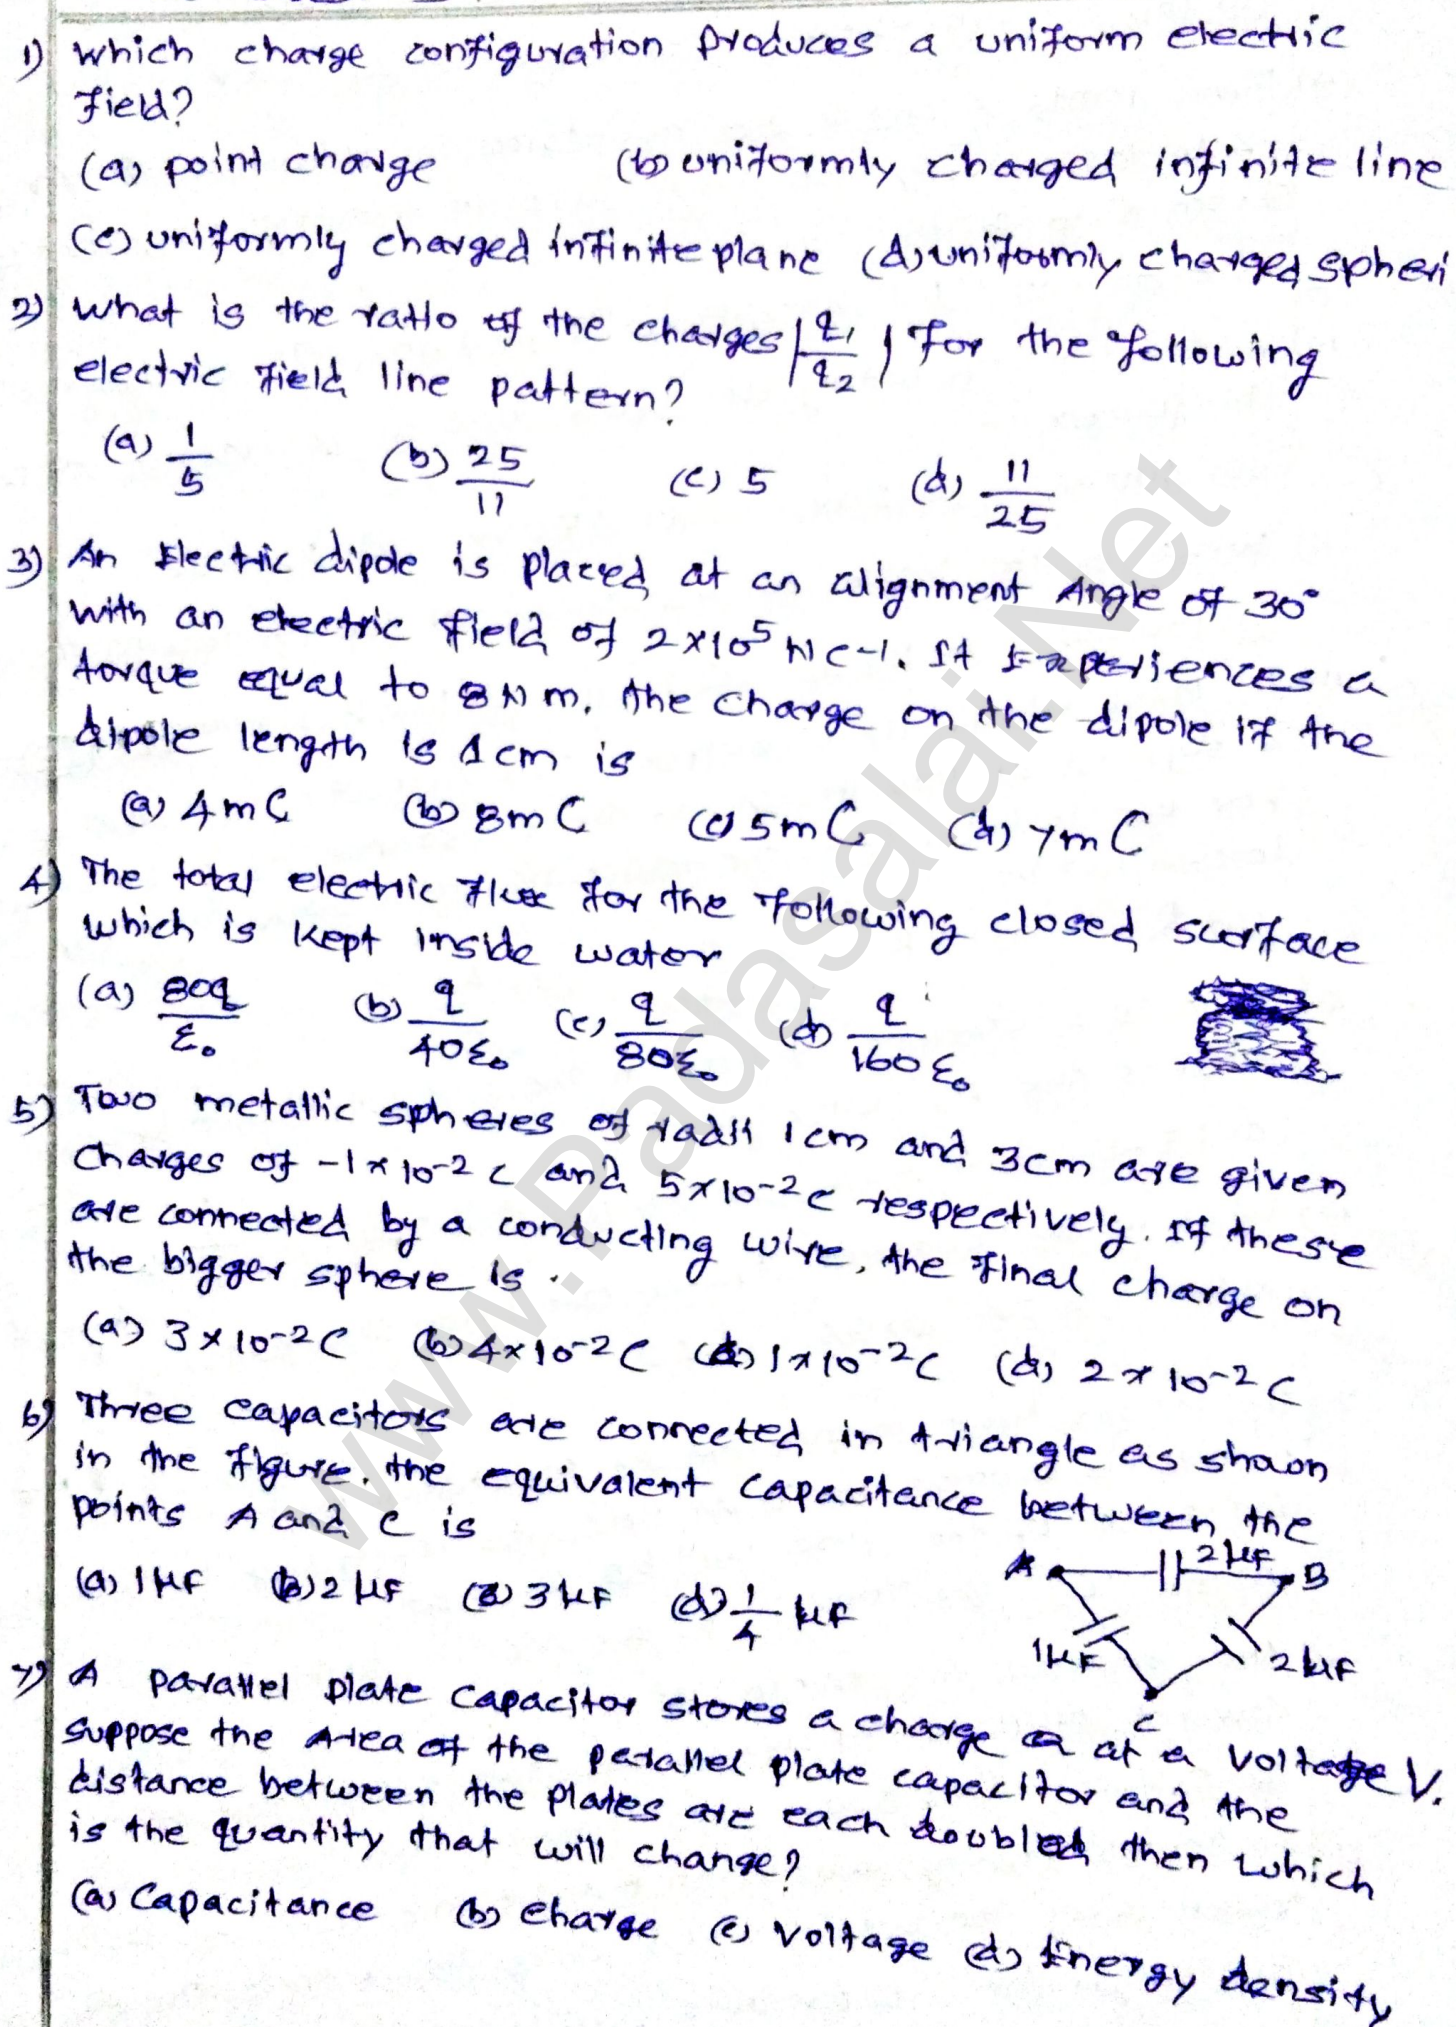 1) Which charge configuration produces a uniform electric
field?
(a) point charge (b) uniformly charged infinite line
(c) uniformly charged infinite plane (d) uniformly charged spheri
2) What is the ratio of the charges |q1/q2| for the following
electric field line pattern?
(a) 1/5 (b) 25/11 (c) 5 (d) 11/25
3) An Electric dipole is placed at an alignment Angle of 30°
with an electric field of 2×10⁵ NC-1. It Experiences a
torque equal to 8 Nm. The charge on the dipole if the
dipole length is 1cm is
(a) 4mC (b) 8mC (c) 5mC (d) 7mC
4) The total electric flux for the following closed surface
which is kept inside water
(a) 80q/ε₀ (b) q/40ε₀ (c) q/80ε₀ (d) q/160ε₀
5) Two metallic spheres of radii 1cm and 3cm are given
charges of -1×10⁻² C and 5×10⁻² C respectively. If these
are connected by a conducting wire, the final charge on
the bigger sphere is.
(a) 3×10⁻² C (b) 4×10⁻² C 1×10⁻² C (d) 2×10⁻² C
6) Three capacitors are connected in triangle as shown
in the figure. the equivalent capacitance between the
points A and C is
(a) 1μF (b) 2μF 3μF (d) 1/4 μF
A 2μF B
1μF 2μF
C
7) A parallel plate capacitor stores a charge Q at a voltage V.
suppose the Area of the parallel plate capacitor and the
distance between the plates are each doubled then which
is the quantity that will change?
(a) Capacitance (b) charge (c) voltage (d) Energy density
www.Padasalai.Net